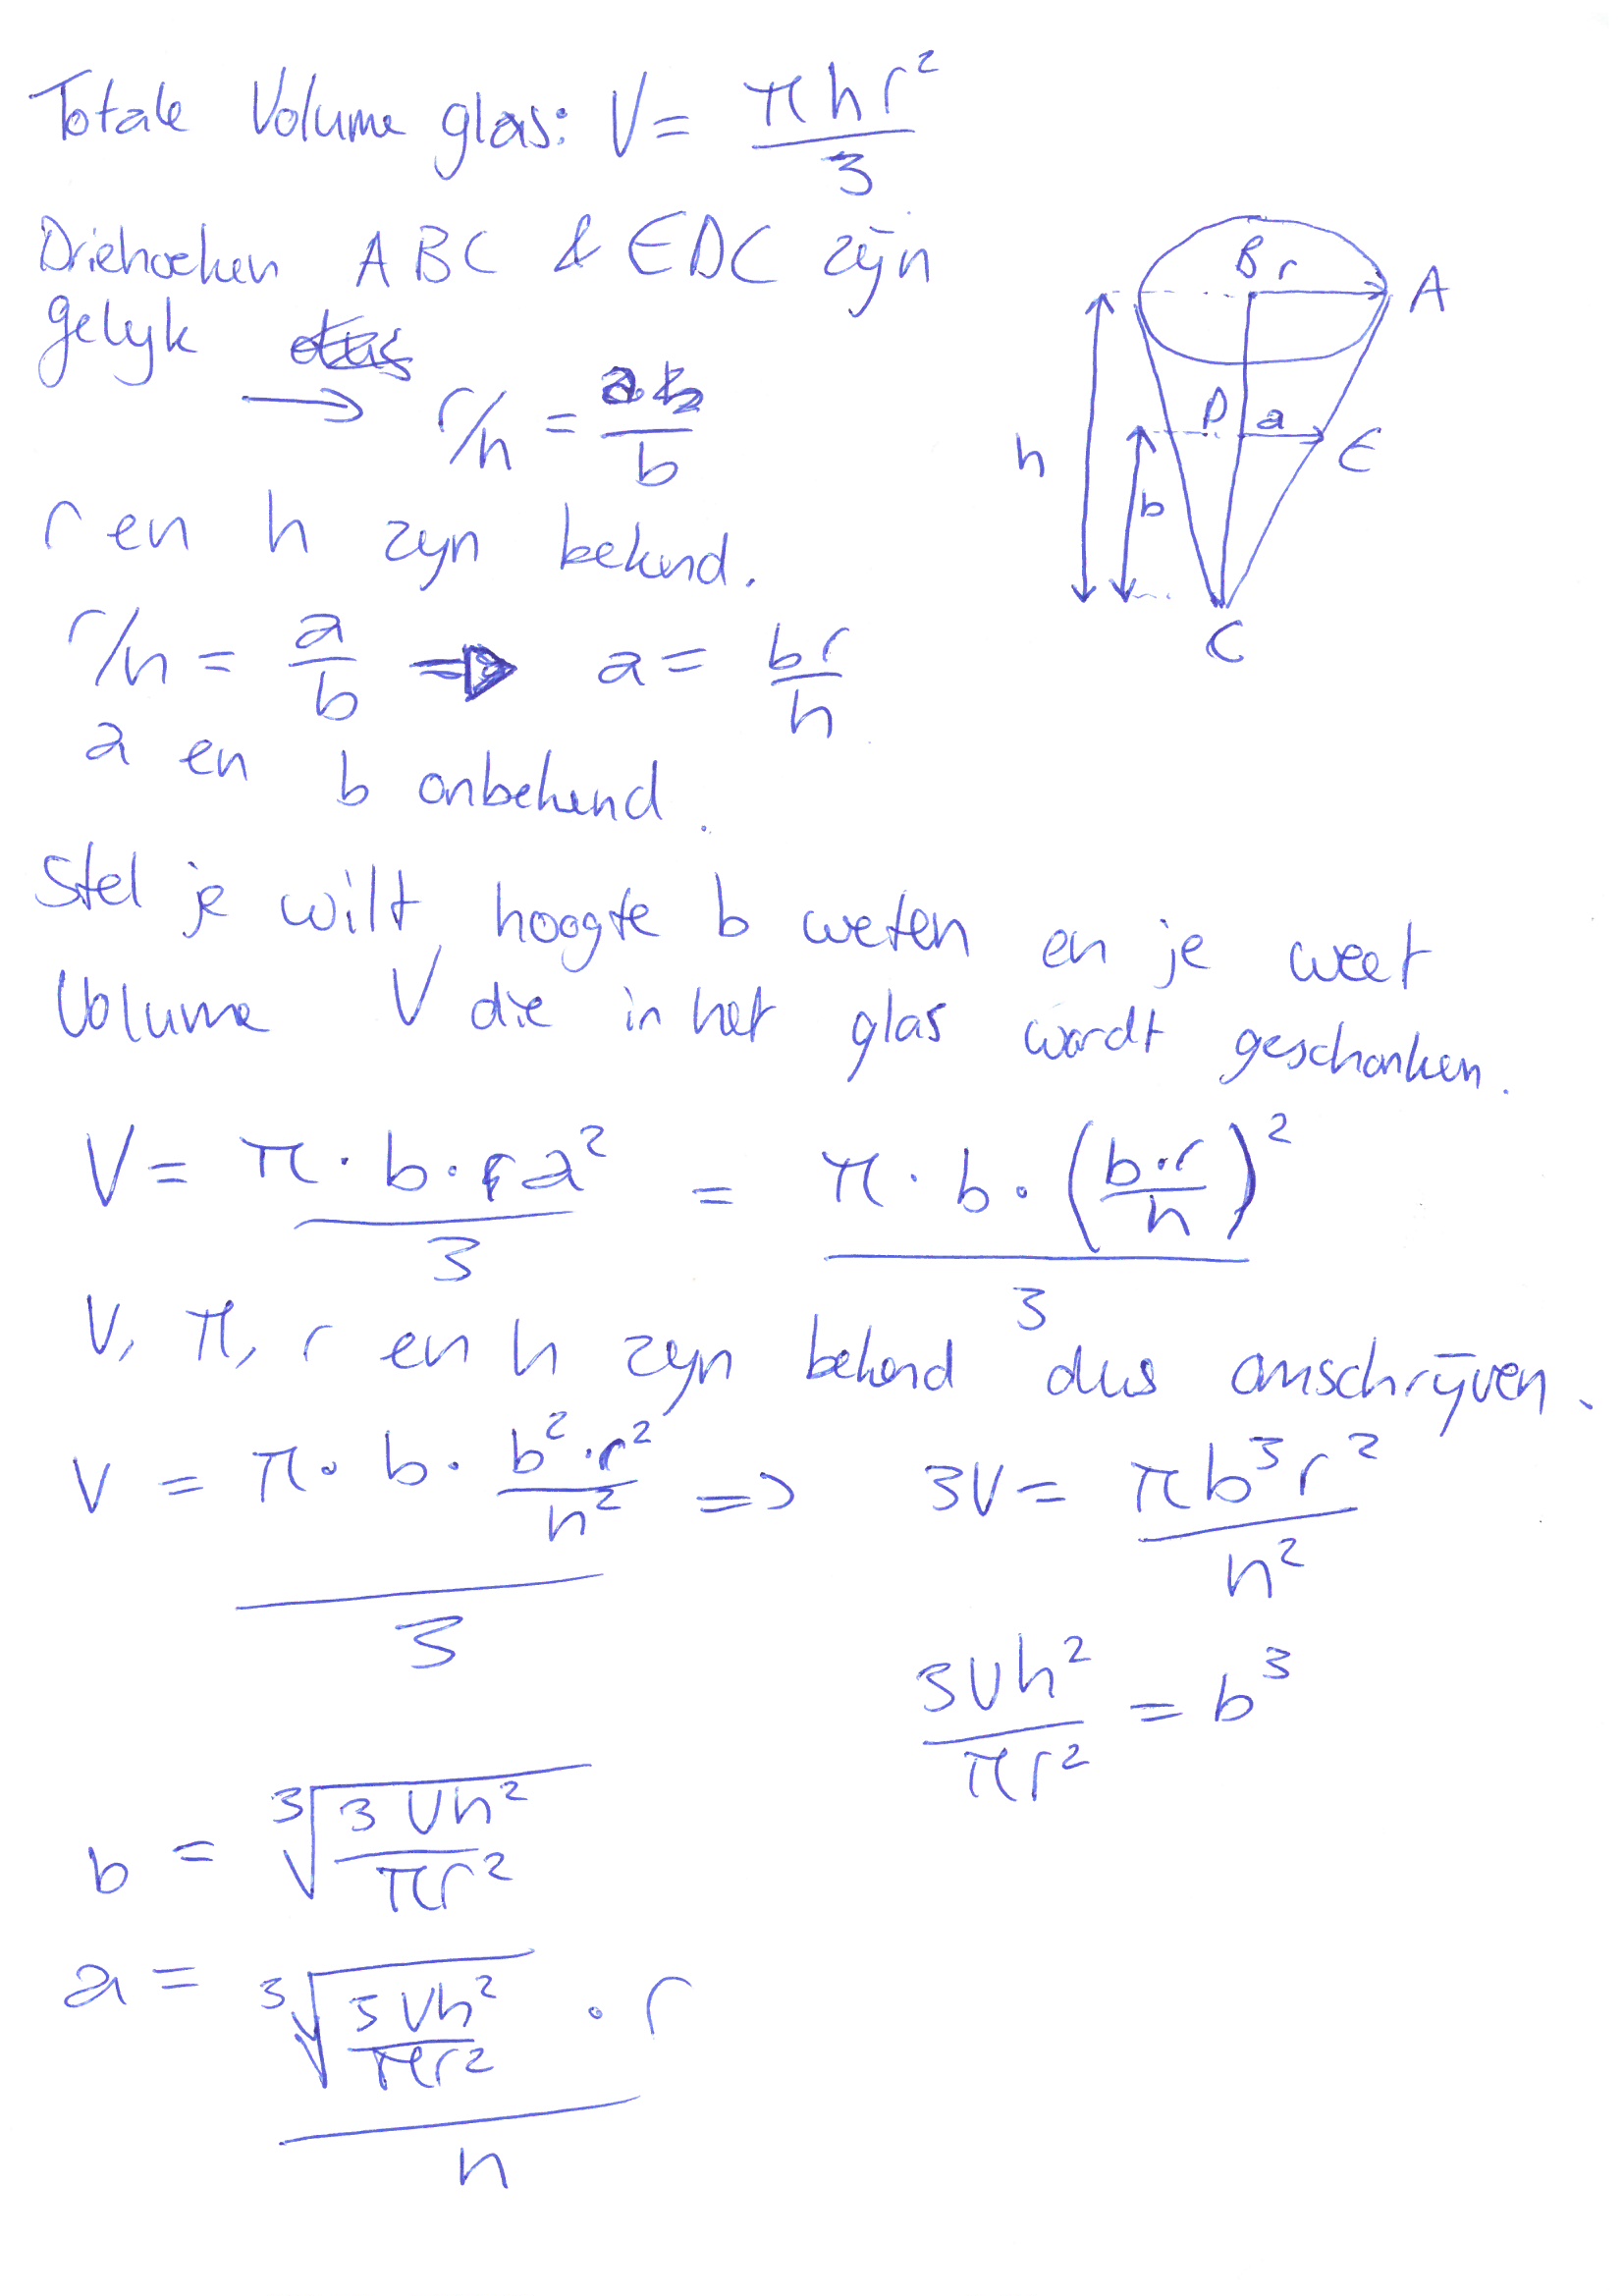 Totale Volume glas: V = πhr²/3
Driehoeken ABC & EDC zijn
gelijk
→ r/h = a/b
r en h zijn bekend.
r/h = a/b ⇒ a = br/h
a en b onbekend.
B r A
D a E
h
b
C
Stel je wilt hoogte b weten en je weet
Volume V die in het glas wordt geschonken.
V = π · b · a²/3 = π · b · (b·r/h)²/3
V, π, r en h zijn bekend dus omschrijven.
V = π · b · b²·r²/h² / 3 => 3V = πb³r²/h²
3Vh²/πr² = b³
b = ∛(3Vh²/πr²)
a = ∛(3Vh²/πr²) · r / h